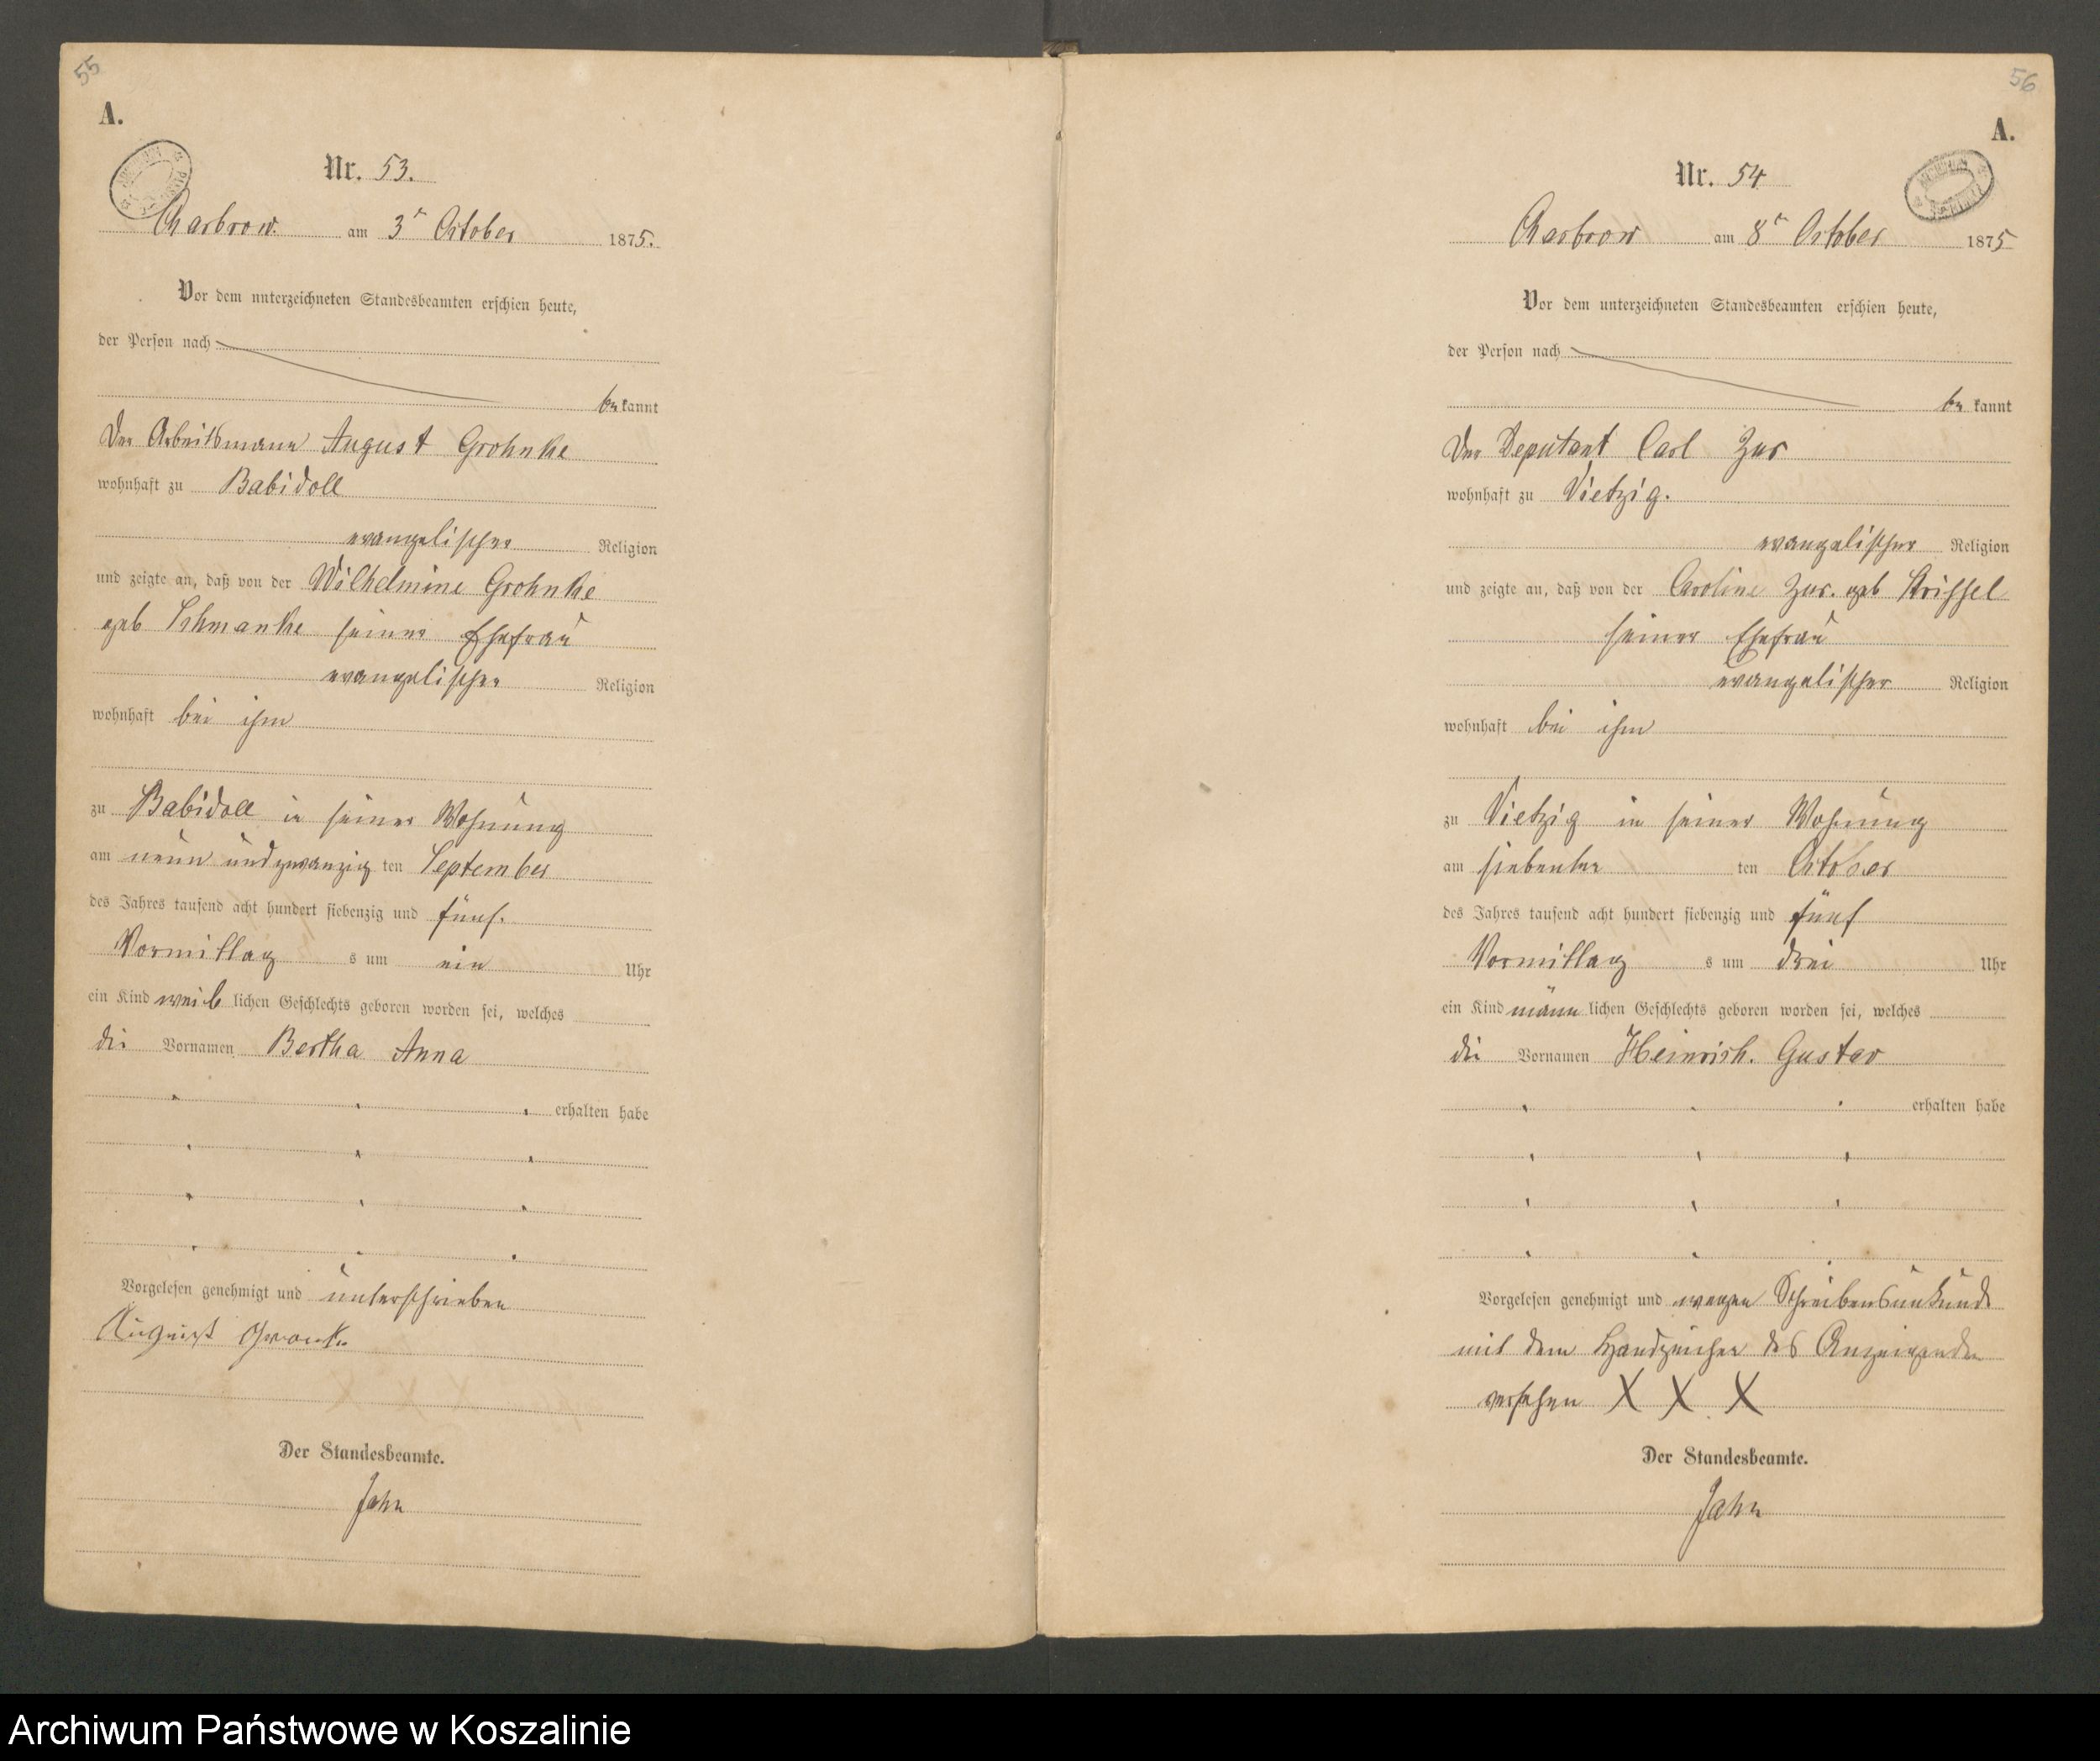 55
A.
Nr. 53.
Charbrow am 3ten October 1875.
Vor dem unterzeichneten Standesbeamten erschien heute,
der Person nach
bekannt
Der Arbeitsmann August Grohnke
wohnhaft zu Babidoll
evangelischer Religion
und zeigte an, daß von der Wilhelmine Grohnke
geb Schmanke seiner Ehefrau
evangelischer Religion
wohnhaft bei ihm
zu Babidoll in seiner Wohnung
am neun und zwanzig ten September
des Jahres tausend acht hundert siebenzig und fünf.
Vormittag s um ein Uhr
ein Kind weib lichen Geschlechts geboren worden sei, welches
die Vornamen Bertha Anna
erhalten habe
Vorgelesen genehmigt und unterschrieben
August Gronke
Der Standesbeamte.
Jahn
56
A.
Nr. 54
Charbrow am 8ten October 1875
Vor dem unterzeichneten Standesbeamten erschien heute,
der Person nach
be kannt
Der Deputant Carl Zur
wohnhaft zu Vietzig.
evangelischer Religion
und zeigte an, daß von der Caroline Zur. geb
seiner Ehefrau
evangelischer Religion
wohnhaft bei ihm
zu Vietzig in seiner Wohnung
am siebenten ten October
des Jahres tausend acht hundert siebenzig und fünf
Vormittag s um drei Uhr
ein Kind männ lichen Geschlechts geboren worden sei, welches
die Vornamen Heinrich. Gustav
erhalten habe
Vorgelesen genehmigt und wegen Schreibensunkunde
mit dem Handzeichen des Anzeigenden
versehen X X X
Der Standesbeamte.
Jahn
Archiwum Państwowe w Koszalinie